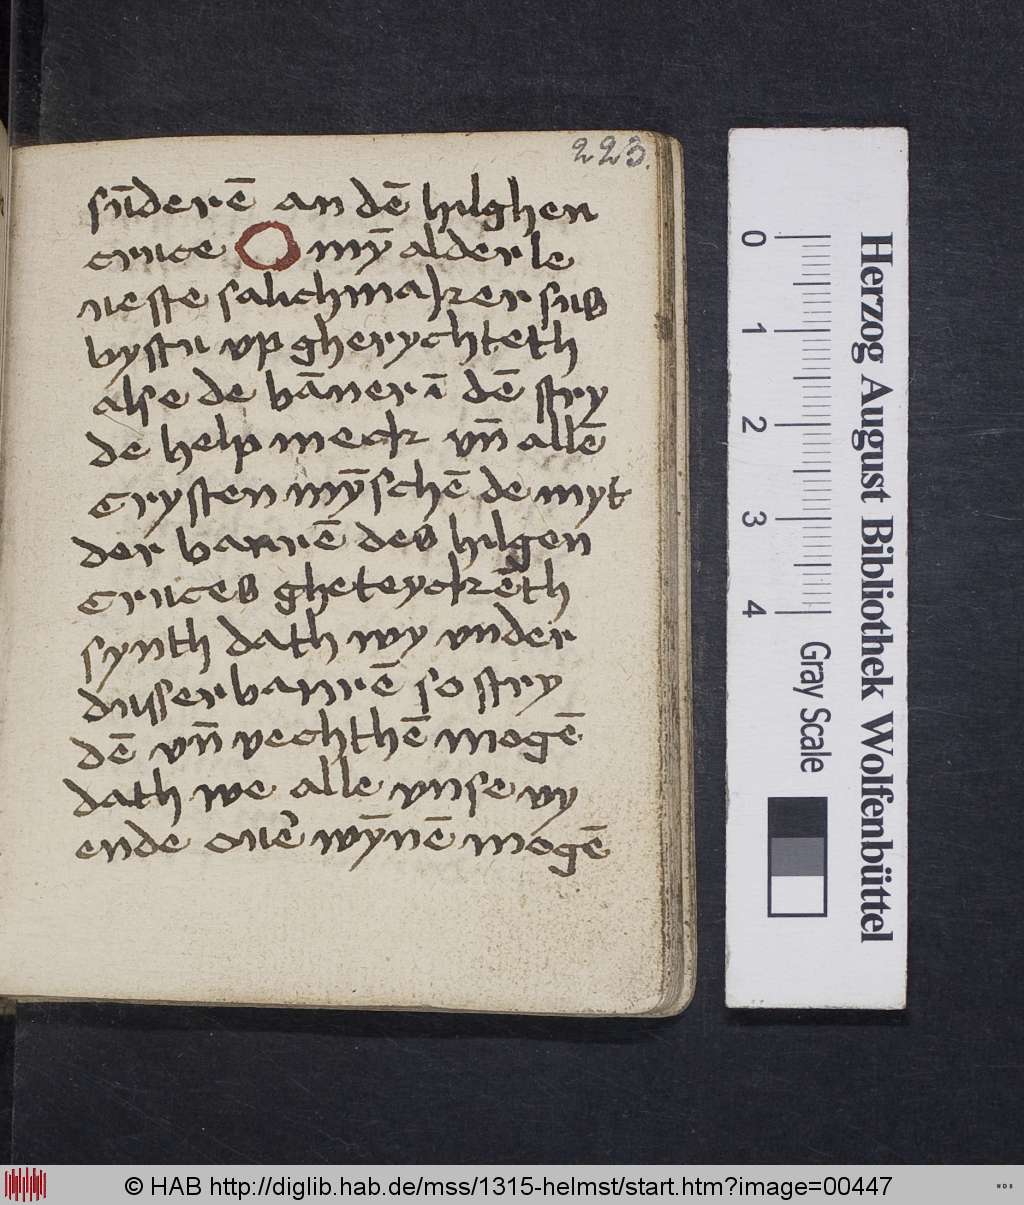 223.
sūderē an dē hilghen
cruce O mȳ alderle
ueste salichmaker sus
bystu vp gherychteth
alse de bāner ī dē stry
de help meck vn̄ allē
Crysten mȳschē de myt
der banrē des hilgen
Cruces gheteyckēth
synth dath wy vnder
dusser banrē so stry
dē vn̄ vechthē mogē
dath we alle vnse vy
ende ouer wȳnē mogē
0 1 2 3 4
Gray Scale
Herzog August Bibliothek Wolfenbüttel
© HAB http://diglib.hab.de/mss/1315-helmst/start.htm?image=00447